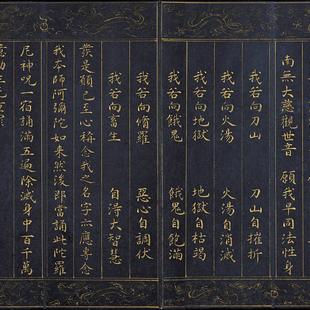 南無大慈觀世音　願我早同法性身
我若向刀山　刀山自摧折
我若向火湯　火湯自消滅
我若向地獄　地獄自枯竭
我若向餓鬼　餓鬼自飽滿
我若向脩羅　惡心自調伏
我若向畜生　自得大智慧
發是願已至心稱念我之名字亦應專念
我本師阿彌陀如來然後即當誦此陀羅
尼神呪一宿誦滿五遍除滅身中百千萬
億劫生死重罪